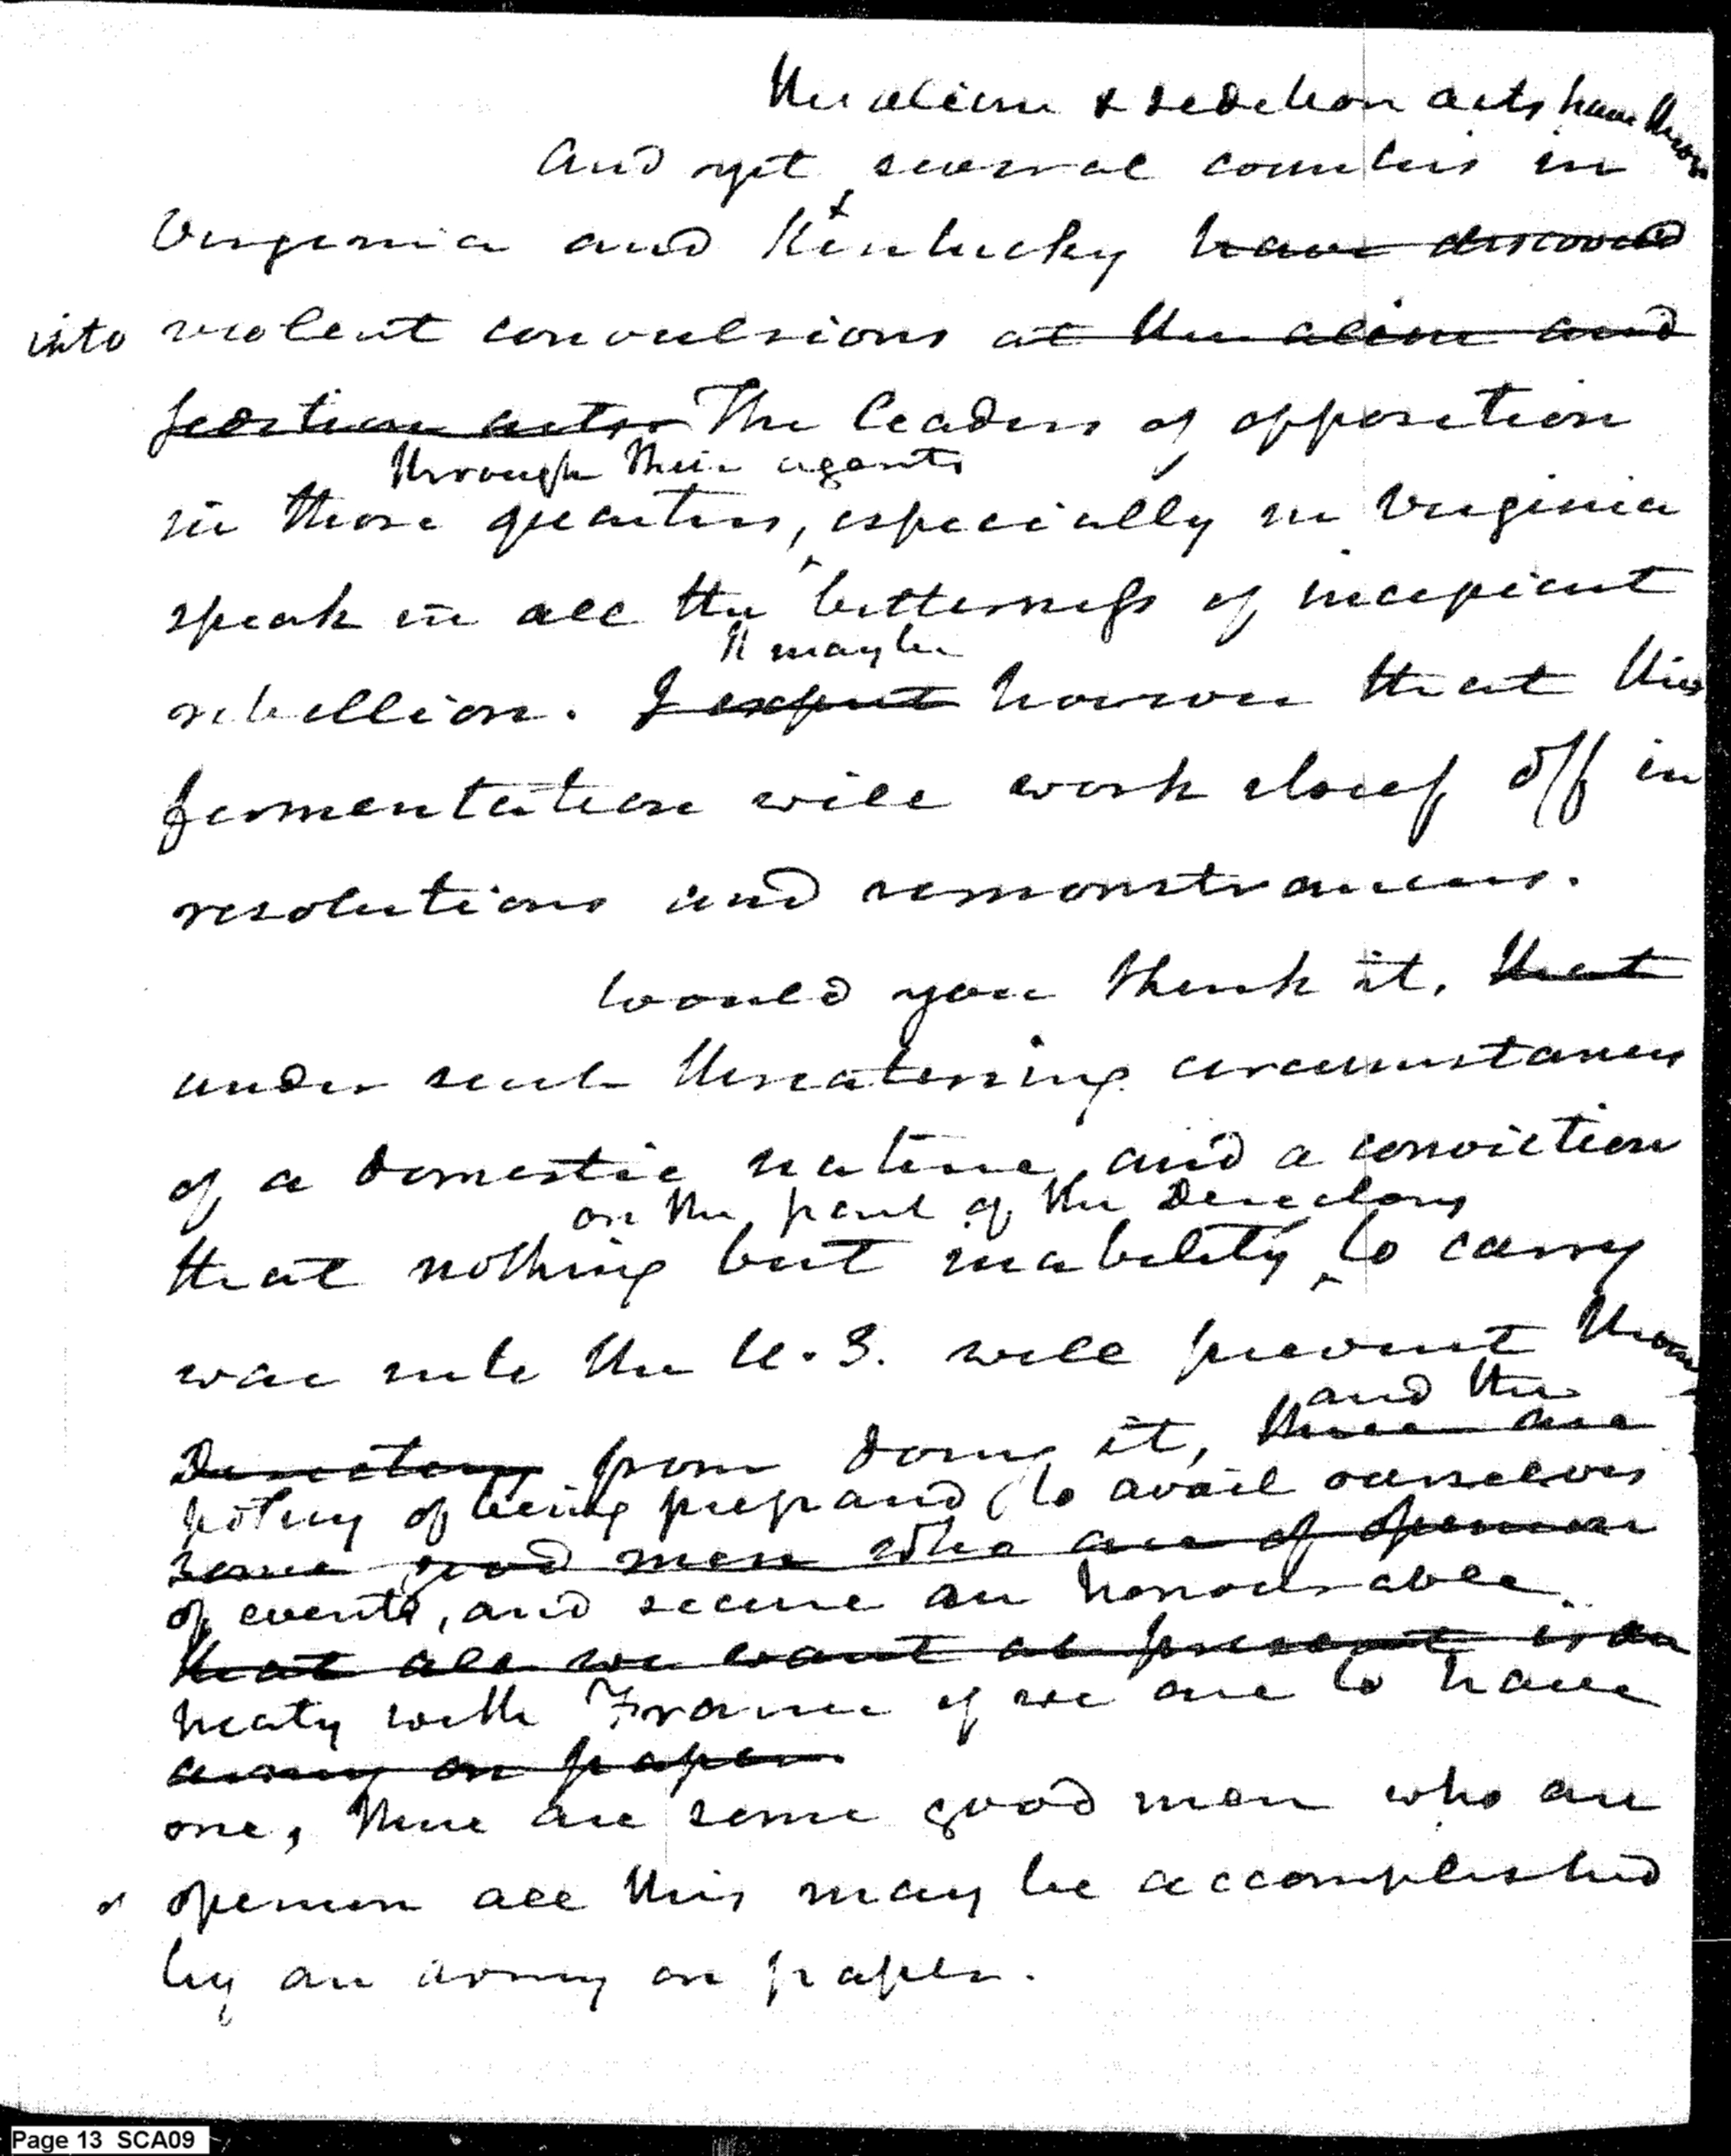 the alien & sedition acts have thrown
And yet several counties in
Virginia and Kentucky have discovered
into violent convulsions at the alien and
sedition acts. The leaders of opposition
through their agents
in those quarters, especially in Virginia
speak in all the bitterness of incipient
It may be
rebellion. I expect however that this
fermentation will work itself off in
resolutions and remonstrances.
Would you think it, that
under such threatening circumstances
of a domestic nature, and a conviction
on the part of the Directory
that nothing but inability to carry
war into the U.S. will prevent them
and the
Directory from doing it, there are
policy of being prepared to avail ourselves
some good men who are of opinion
of events, and secure an honourable
that all we want at present is an
treaty with France if we are to have
army on paper.
one, there are some good men who are
of opinion all this may be accomplished
by an army on paper.
Page 13 SCA09